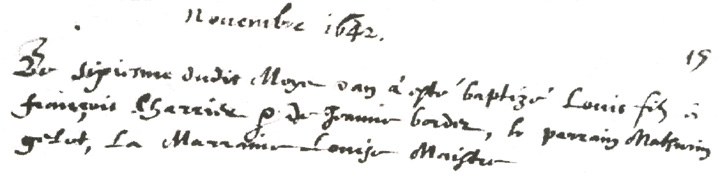 Novembre 1642.
15
Le sixiesme dudit Moys dan a esté baptizé Louis filz à
françois Charrier & de Jeanne bordez, le parrain Mathurin
gelot, La Marraine Louise Maistre